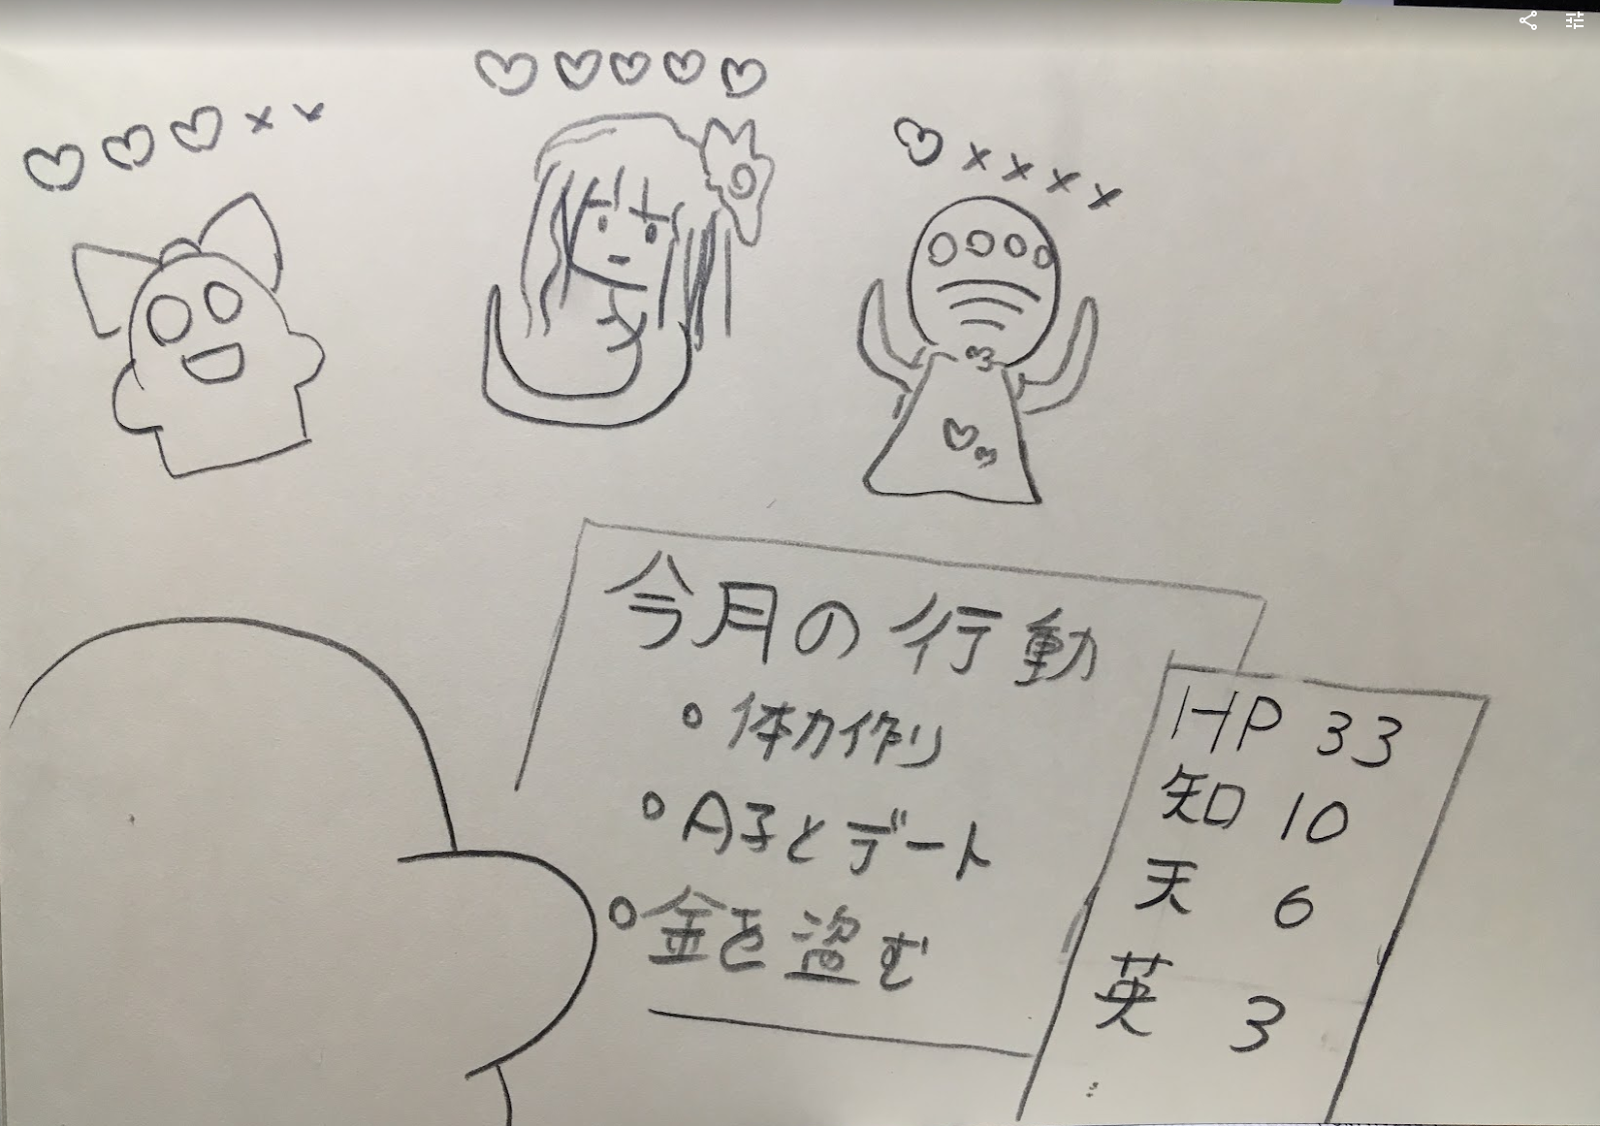 今月の行動
体力作り
A子とデート
金を盗む
HP 33
知 10
天 6
英 3